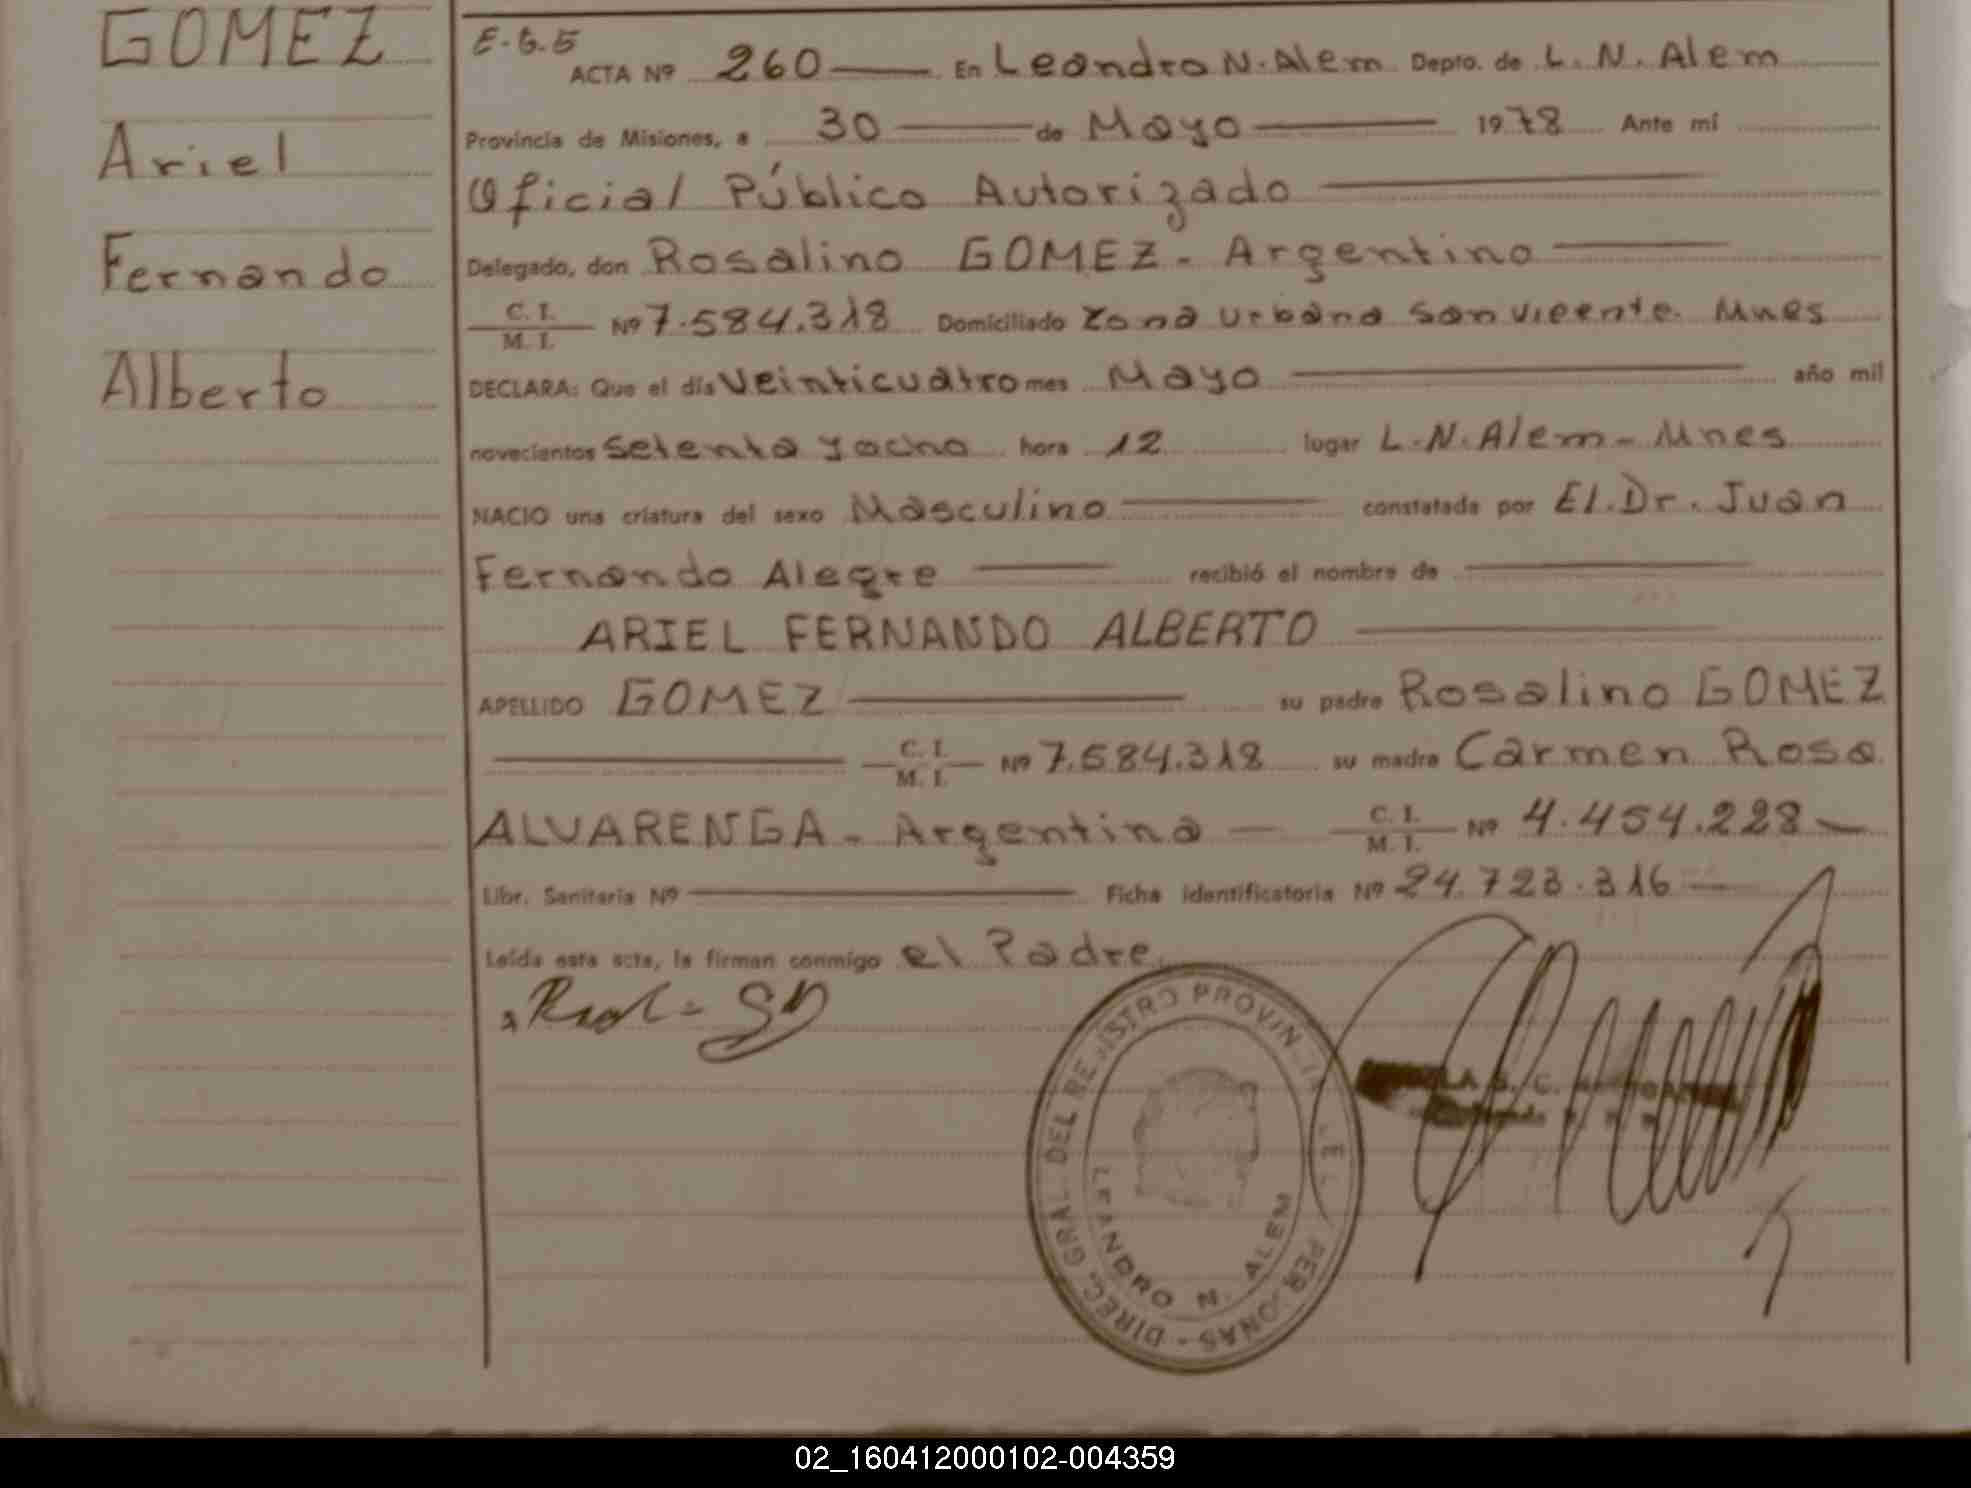 GOMEZ
Ariel
Fernando
Alberto
E-5.5
ACTA Nº 260 En Leandro N. Alem Depto. de L. N. Alem
Provincia de Misiones, a 30 de Mayo 1978 Ante mí
Oficial Público Autorizado
Delegado, don Rosalino GOMEZ - Argentino
C. I.
M. I. Nº 7.584.318 Domiciliado Zona Urbana San Vicente. Mnes
DECLARA: Que el día Veinticuatro mes Mayo año mil
novecientos Setenta y ocho hora 12 lugar L.N. Alem - Mnes
NACIO una criatura del sexo Masculino constatada por El. Dr. Juan
Fernando Alegre recibió el nombre de
ARIEL FERNANDO ALBERTO
APELLIDO GOMEZ su padre Rosalino GOMEZ
C. I.
M. I. Nº 7.584.318 su madre Carmen Rosa
ALVARENGA - Argentina C. I.
M. I. Nº 4.454.228
Libr. Sanitaria Nº Ficha identificatoria Nº 24.723.316
Leída esta acta, la firman conmigo el Padre
DIREC. GRAL. DEL REGISTRO PROVIN DE PERSONAS
LEANDRO N. ALEM
02_160412000102-004359